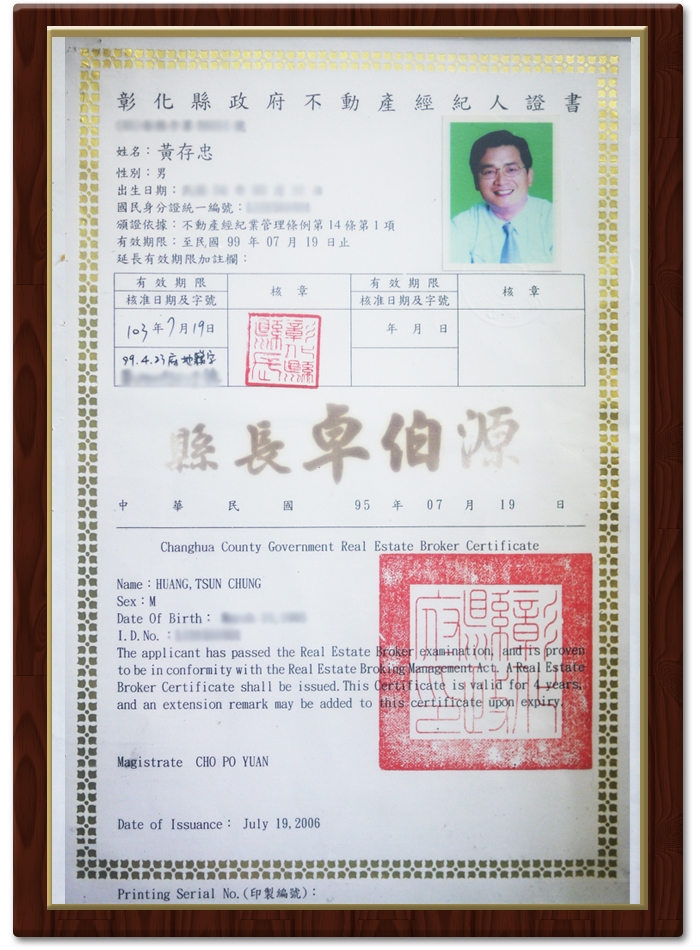 彰化縣政府不動產經紀人證書
姓名：黃存忠
性別：男
出生日期：
國民身分證統一編號：
頒證依據：不動產經紀業管理條例第14條第1項
有效期限：至民國 99 年 07 月 19 日止
延長有效期限加註欄：
有效期限 核章 有效期限 核章
核准日期及字號 核准日期及字號
103年7月19日 年 月 日
99.4.23府地籍字
彰化縣縣長
縣長卓伯源
中華民國 95 年 07 月 19 日
Changhua County Government Real Estate Broker Certificate
Name：HUANG,TSUN CHUNG
Sex：M
Date Of Birth：
I.D.No.：
The applicant has passed the Real Estate Broker examination, and is proven
to be in conformity with the Real Estate Broking Management Act. A Real Estate
Broker Certificate shall be issued. This Certificate is valid for 4 years,
and an extension remark may be added to this certificate upon expiry.
彰化縣政府印
Magistrate CHO PO YUAN
Date of Issuance： July 19,2006
Printing Serial No.(印製編號)：